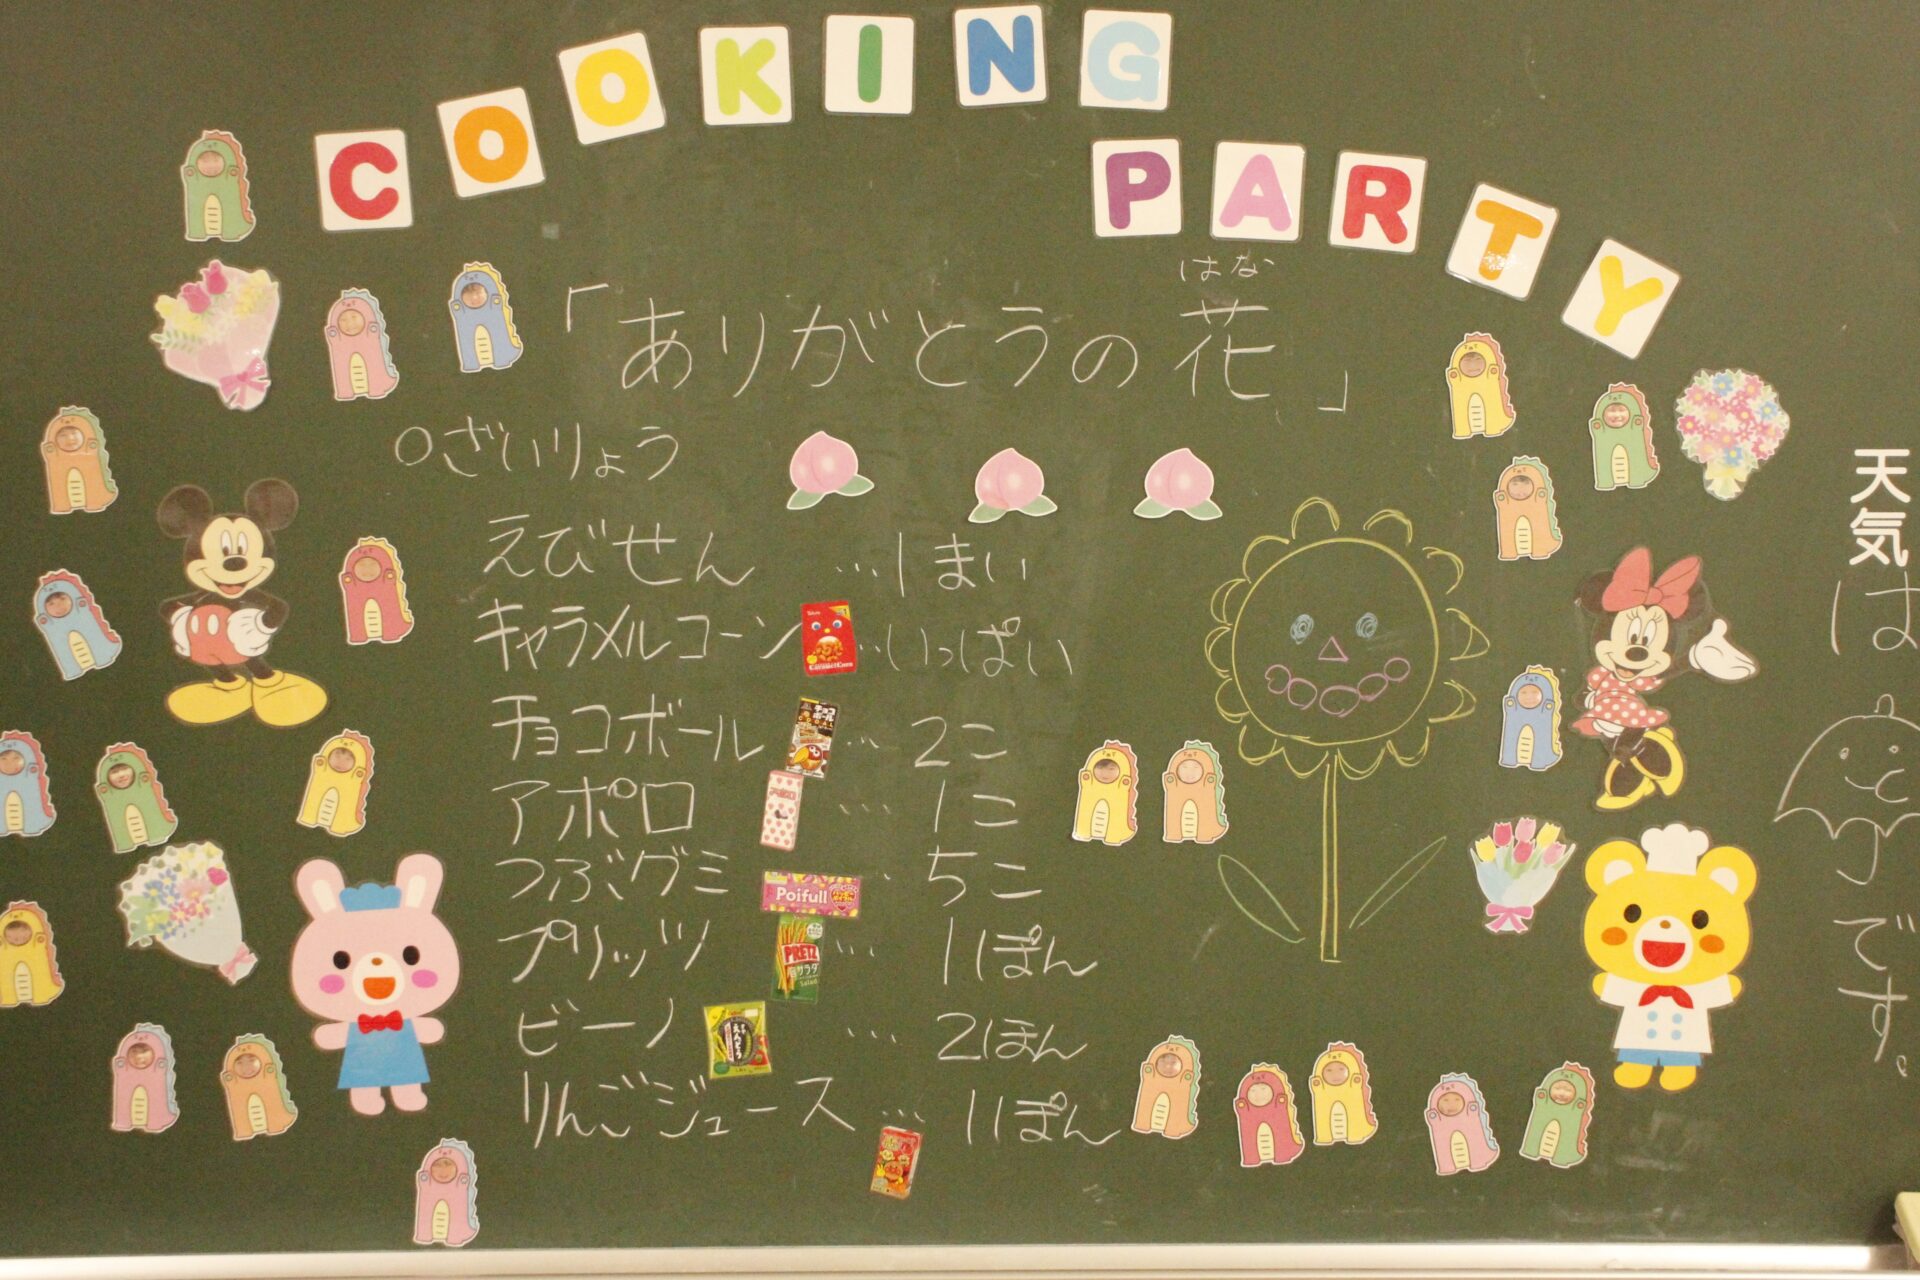 COOKING
PARTY
はな
「ありがとうの花」
○ざいりょう
えびせん …1まい
キャラメルコーン …いっぱい
チョコボール … 2こ
アポロ … 1こ
つぶグミ … 5こ
Poifull
プリッツ … 1ぽん
PRETZ
サラダ
Salad
ビーノ … 2ほん
りんごジュース … 1ぽん
天気は
です。